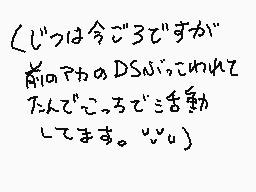 (じつは今ごろですが
前のアカのDSぶっこわれて
たんでこっちで活動
してます。